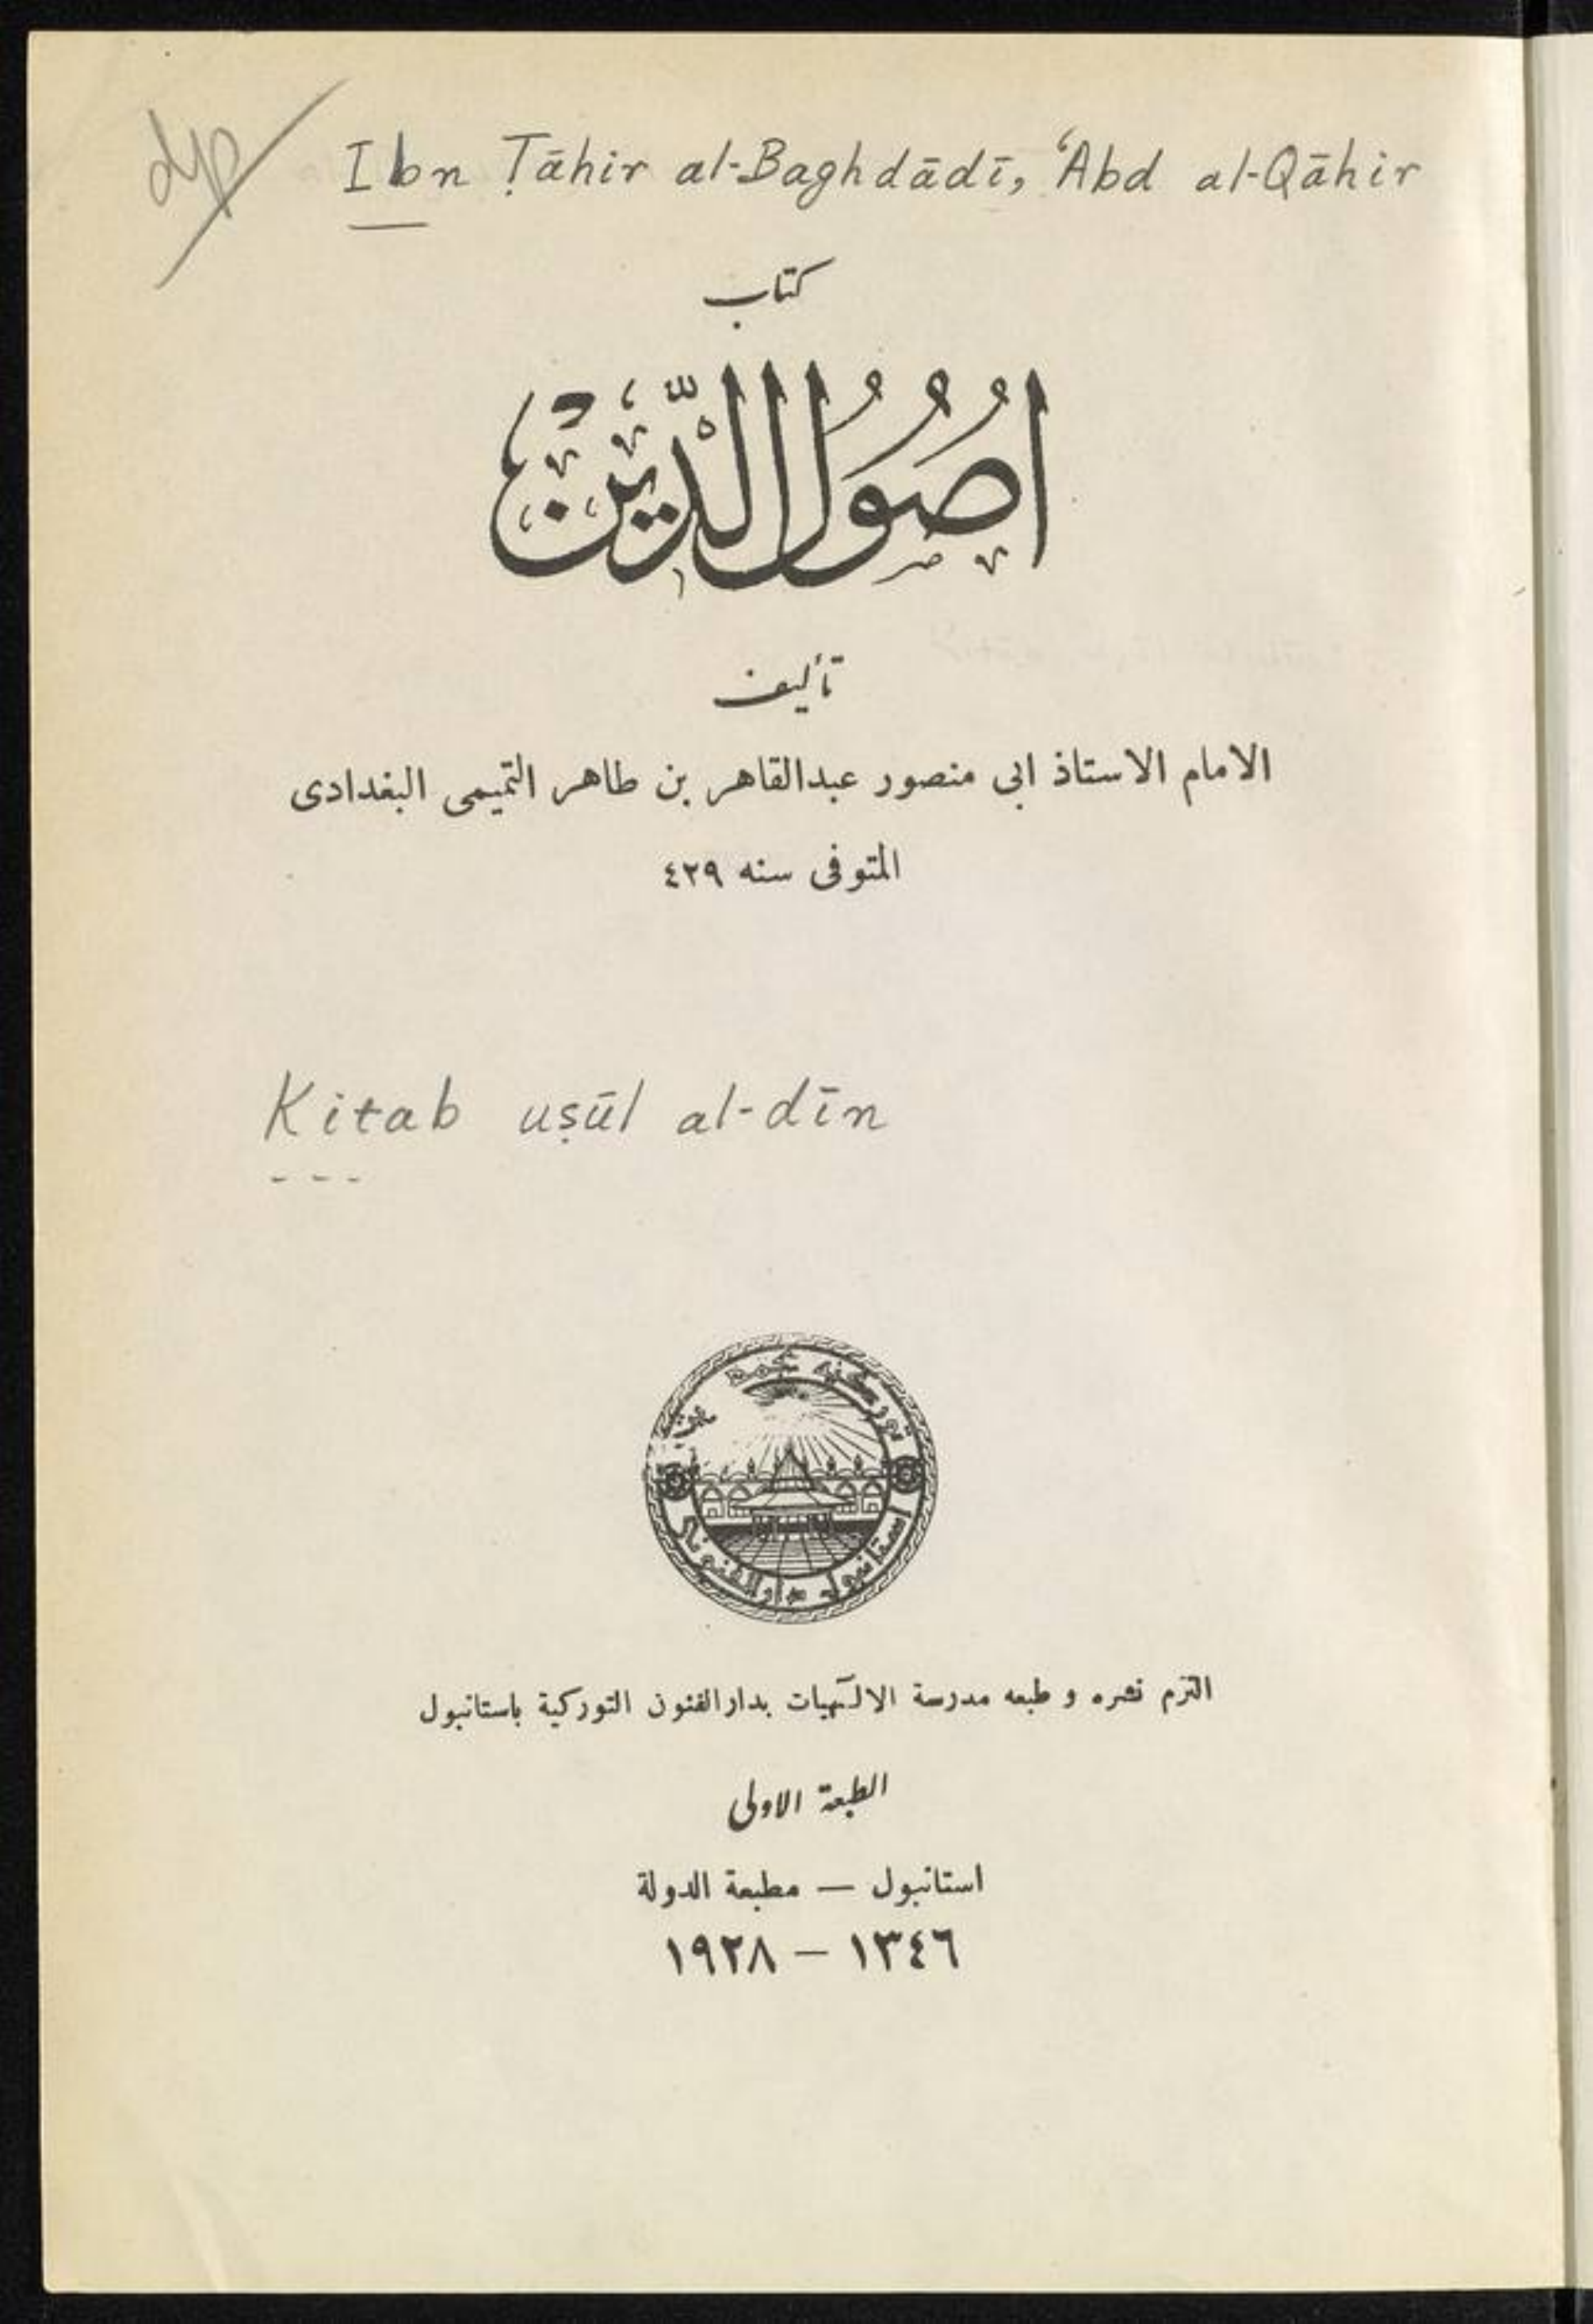 dp
Ibn Ṭāhir al-Baghdādī, ʿAbd al-Qāhir
كتاب
اُصُولُ الدّينْ
تأليف
الامام الاستاذ ابى منصور عبدالقاهر بن طاهر التميمى البغدادى
المتوفى سنه ٤٢٩
Kitab uṣūl al-dīn
توركيه جمهوريتى
استانبول دارالفنونى
التزم نشره و طبعه مدرسة الالٓهيات بدارالفنون التوركية باستانبول
الطبعة الاولى
استانبول — مطبعة الدولة
١٣٤٦ — ١٩٢٨